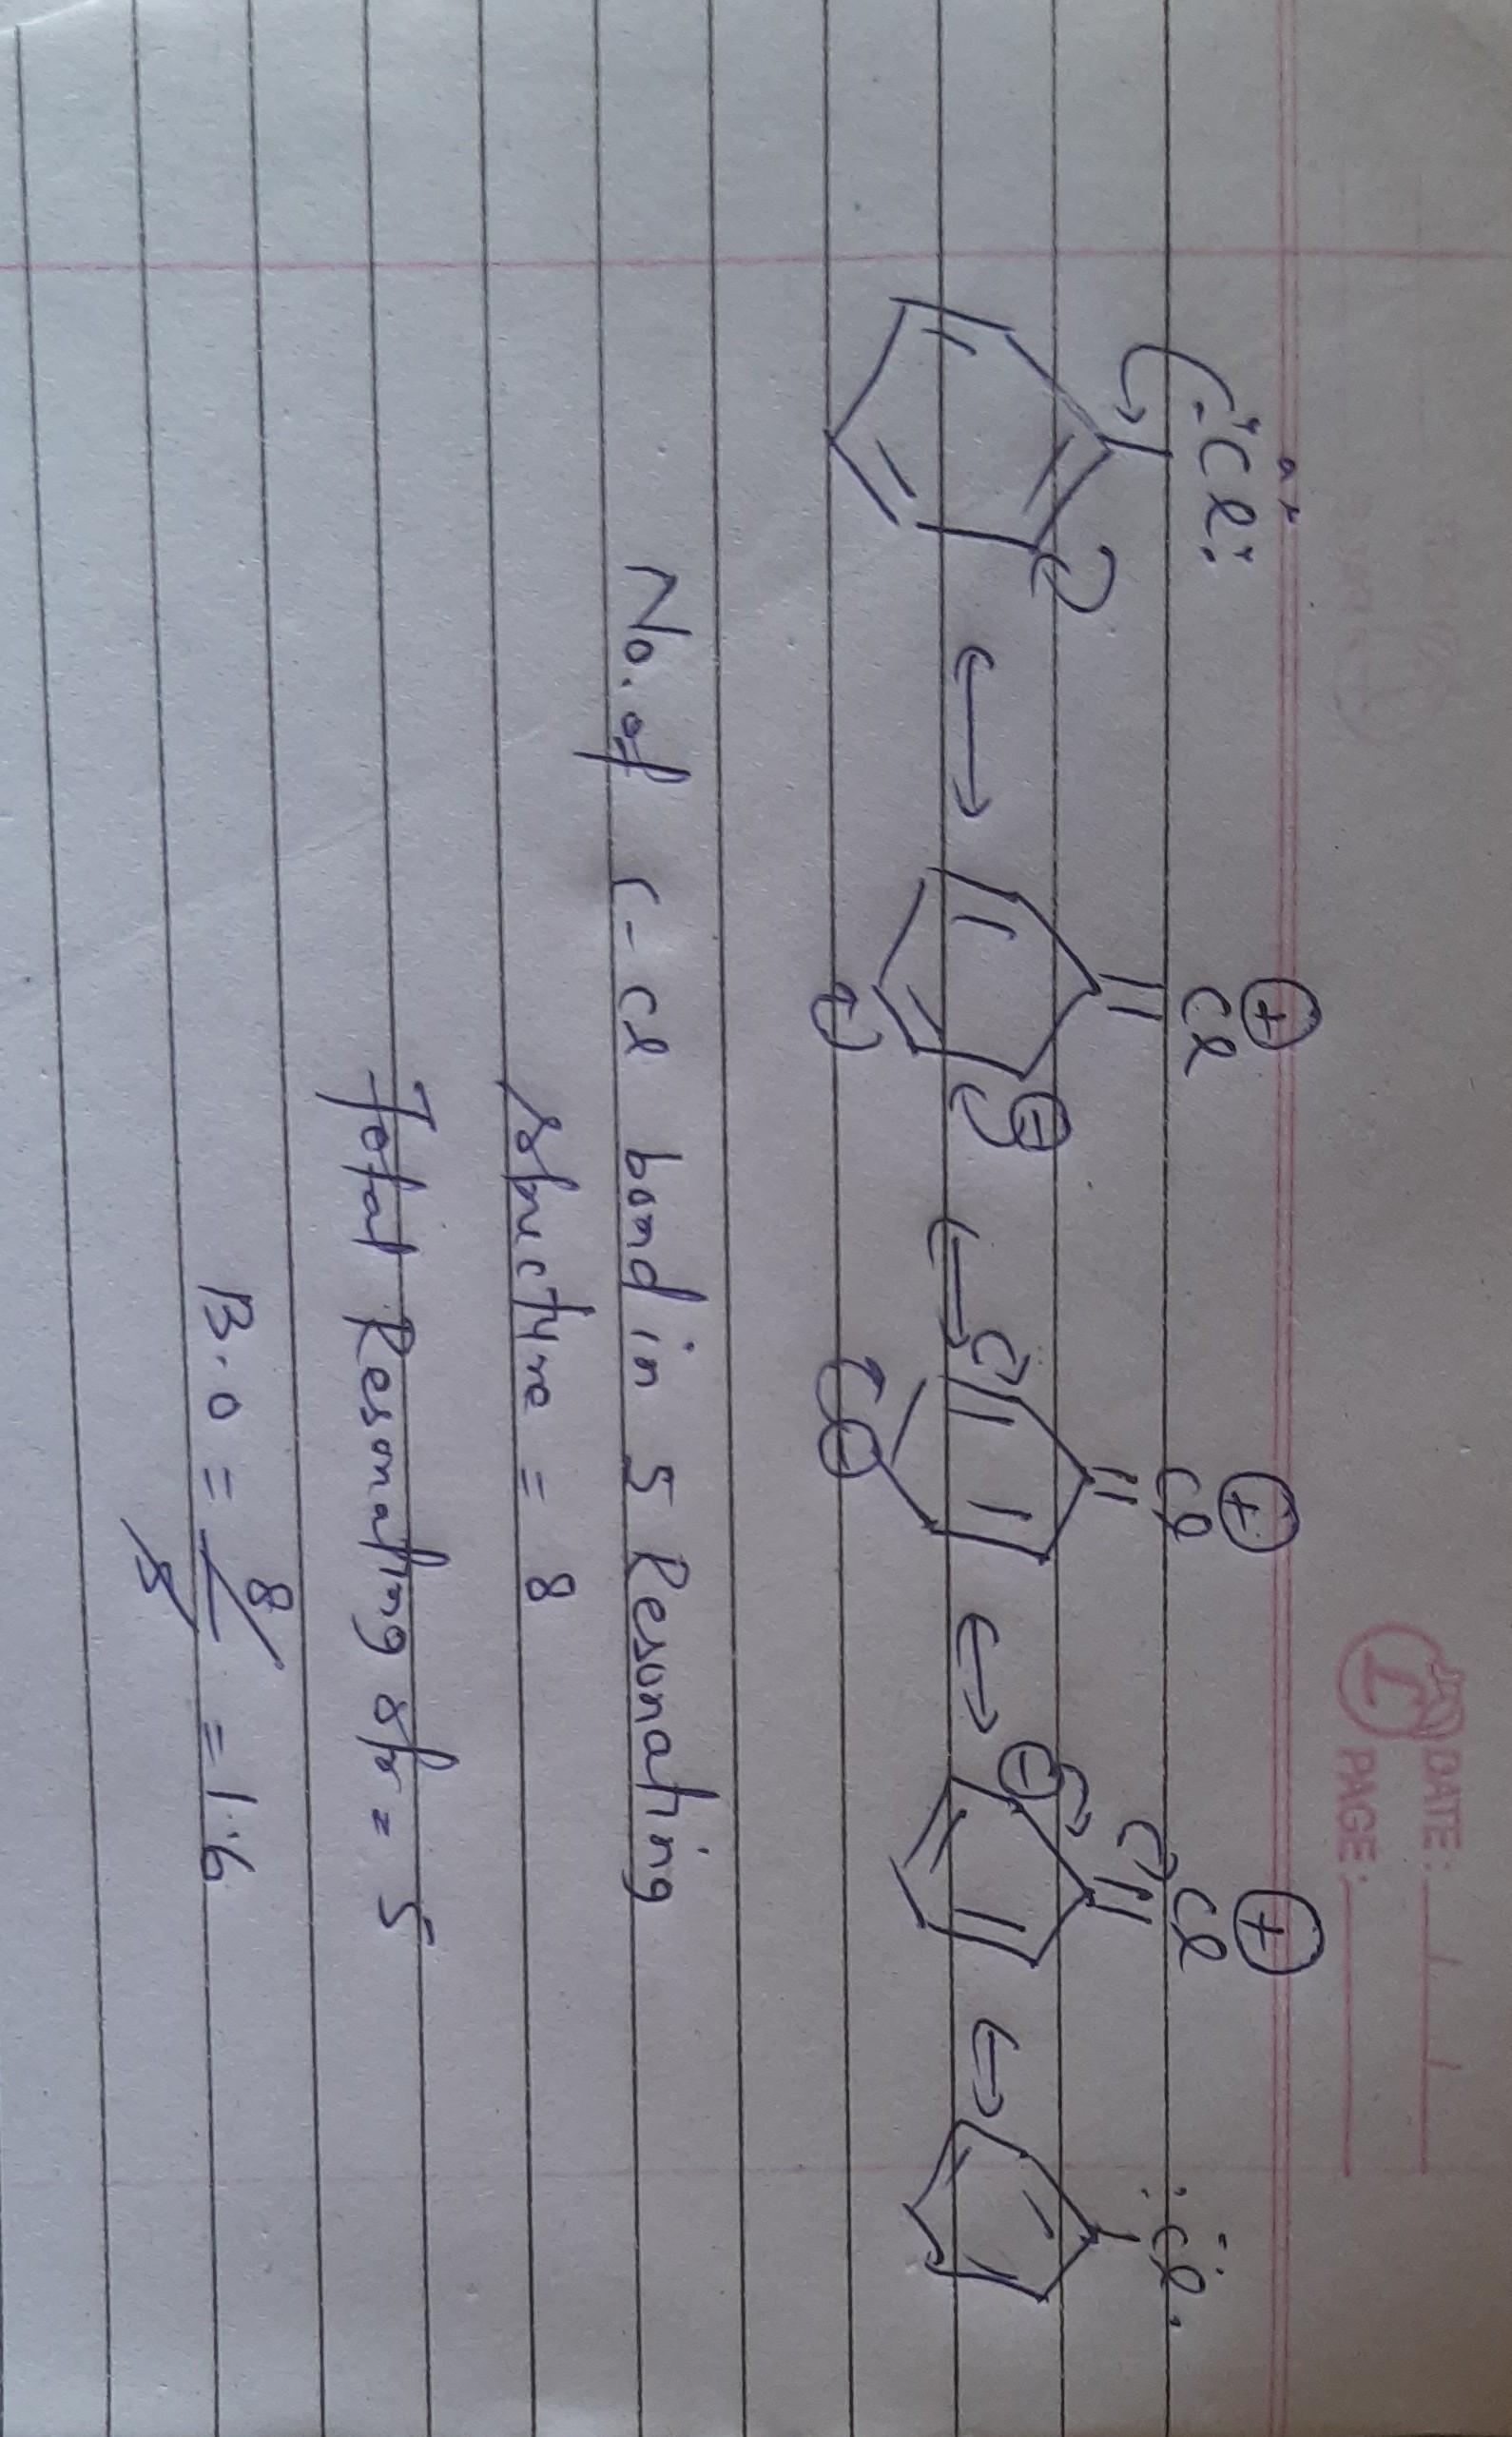 DATE: __/__/__
PAGE: ______
:Cl: ⊕ Cl ⊕ Cl ⊕ Cl :Cl:
⊖ ⊖ ⊖
No. of C-Cl bond in 5 Resonating
structure = 8
Total Resonating str = 5
B.O = 8/5 = 1.6